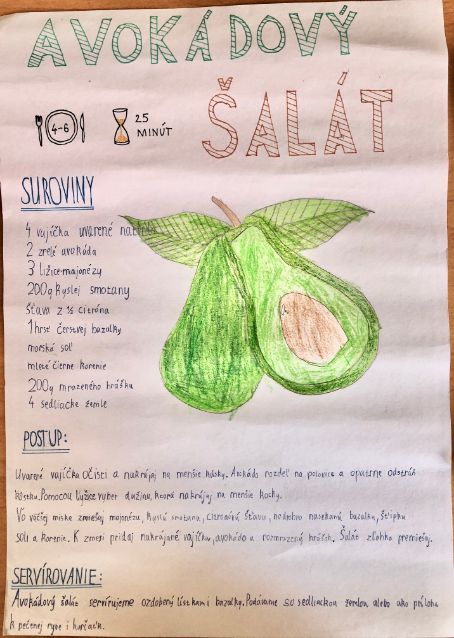 AVOKÁDOVÝ
ŠALÁT
4-6
25
MINÚT
SUROVINY
4 vajíčka uvarené natvrdo
2 zrelé avokáda
3 ližice majonézy
200g kyslej smotany
šťava z ½ citróna
1 hrsť čerstvej bazalky
morská soľ
mleté čierne korenie
200g mrazeného hrášku
4 sedliacke žemle
POSTUP:
Uvarené vajíčka očisti a nakrájaj na menšie kúsky. Avokádo rozdeľ na polovice a opatrne odstráň
kôstku. Pomocou lyžice vyber dužinu, ktorú nakrájaj na menšie kocky.
Vo väčšej miske zmiešaj majonézu, kyslú smotanu, citrónovú šťavu, nadrobno nasekanú bazalku, štipku
soli a korenia. K zmesi pridaj nakrájané vajíčka, avokádo a rozmrazený hrášok. Šalát zľahka premiešaj.
SERVÍROVANIE:
Avokádový šalát servírujeme ozdobený lístkami bazalky. Podávame so sedliackou žemľou alebo ako prílohu
k pečenej rybe i kurčaťu.